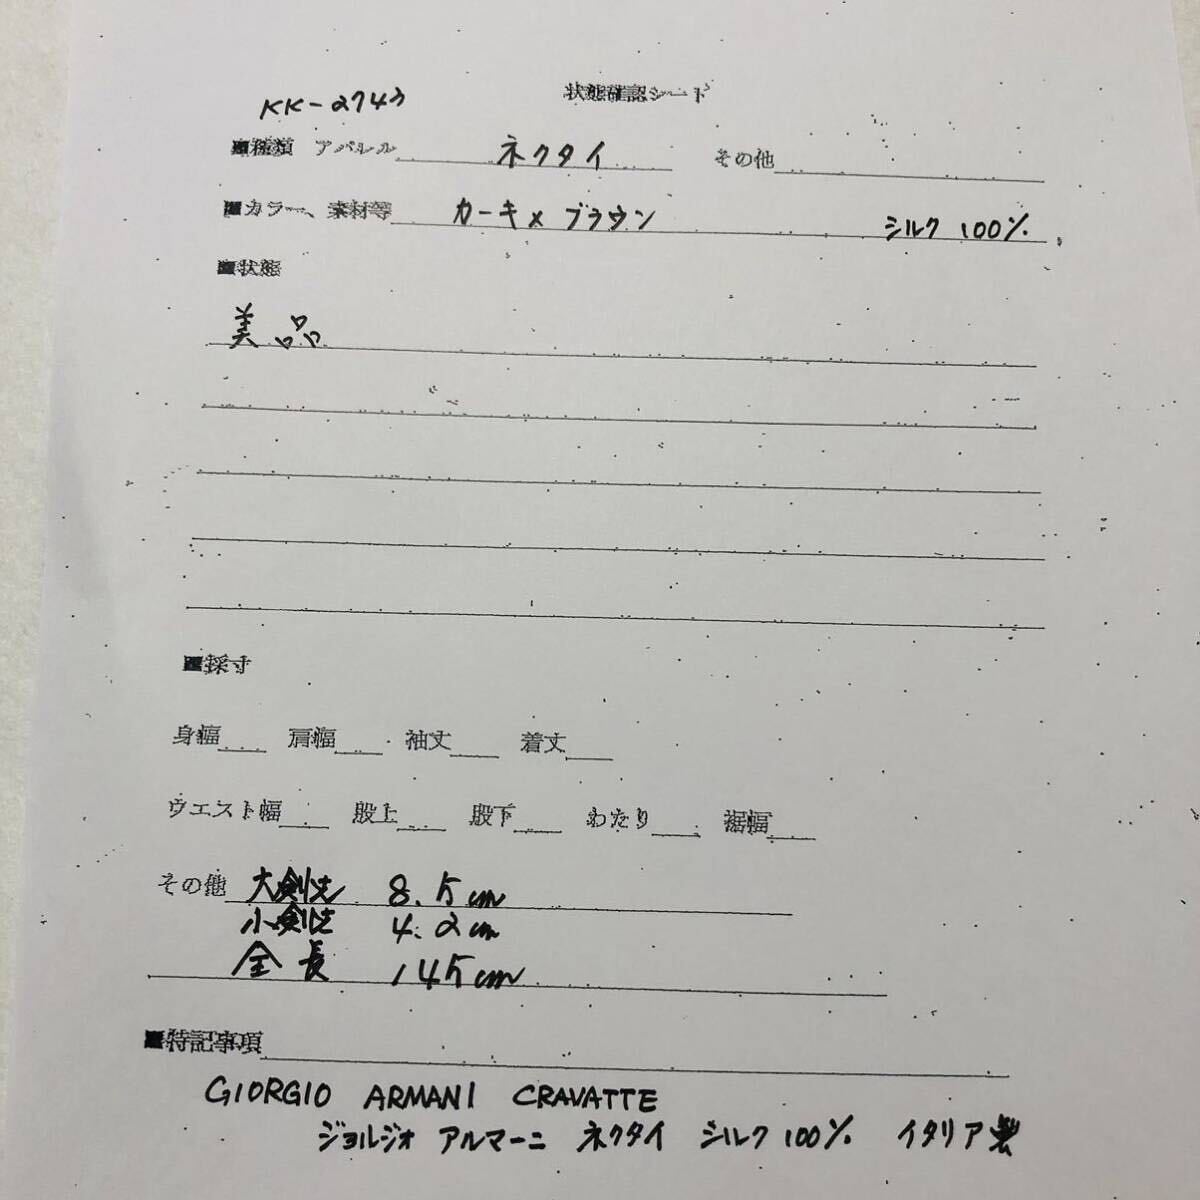 状態確認シート
KK-2743
■種類 アパレル ネクタイ その他
■カラー、素材等 カーキ×ブラウン シルク 100%
■状態
美品
■採寸
身幅 肩幅 袖丈 着丈
ウエスト幅 股上 股下 わたり 裾幅
その他 大剣法 8.5cm
小剣法 4.2cm
全長 145cm
■特記事項
GIORGIO ARMANI CRAVATTE
ジョルジオ アルマーニ ネクタイ シルク100% イタリア製